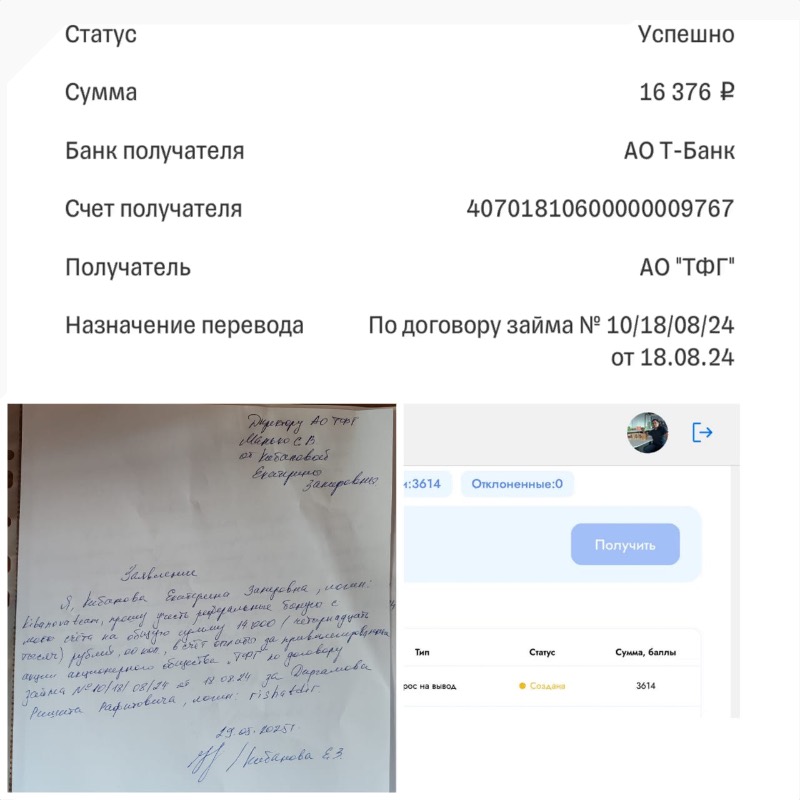 Статус Успешно
Сумма 16 376 ₽
Банк получателя АО Т-Банк
Счет получателя 40701810600000009767
Получатель АО "ТФГ"
Назначение перевода По договору займа № 10/18/08/24
от 18.08.24
Директору АО ТФГ
С В
от Кабановой
Екатерины
Закировны
Заявление
Я, Кабанова Екатерина Закировна, логин:
прошу учесть реферальные бонусы с
моего счёта на общую сумму 14000 (четырнадцать
тысяч) рублей, 00 коп, в счёт оплаты за привилегированные
акции акционерного общества "ТФГ" по договору
займа №10/18/08/24 от 18.08.24 за
Рафитовича, логин: rishatdir
29.05.2025г
/Кабанова Е.З.
:3614 Отклоненные:0
Получить
Тип Статус Сумма, баллы
рос на вывод Создана 3614